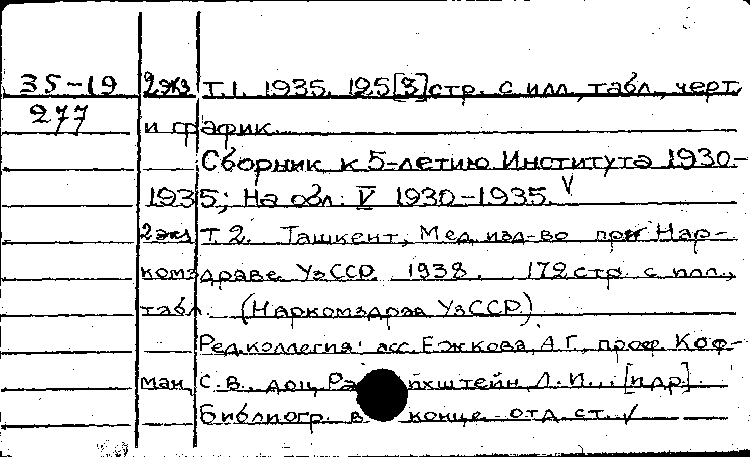 35-19 2экз Т.1. 1935. 125[3]стр. с илл., табл., черт.
277 и график.
Сборник к 5-летию Института 1930-
1935; На обл. V 1930-1935. V
2экз Т.2. Ташкент, Мед. изд-во при Нар-
комздраве УзССР. 1938. 172 стр. с илл.,
табл. (Наркомздрав УзССР)
Ред. коллегия: асс. Ежкова, А.Г., проф. Коф-
ман, С.В., доц. Л.И... [и др].
Библиогр. в конце отд. ст. √